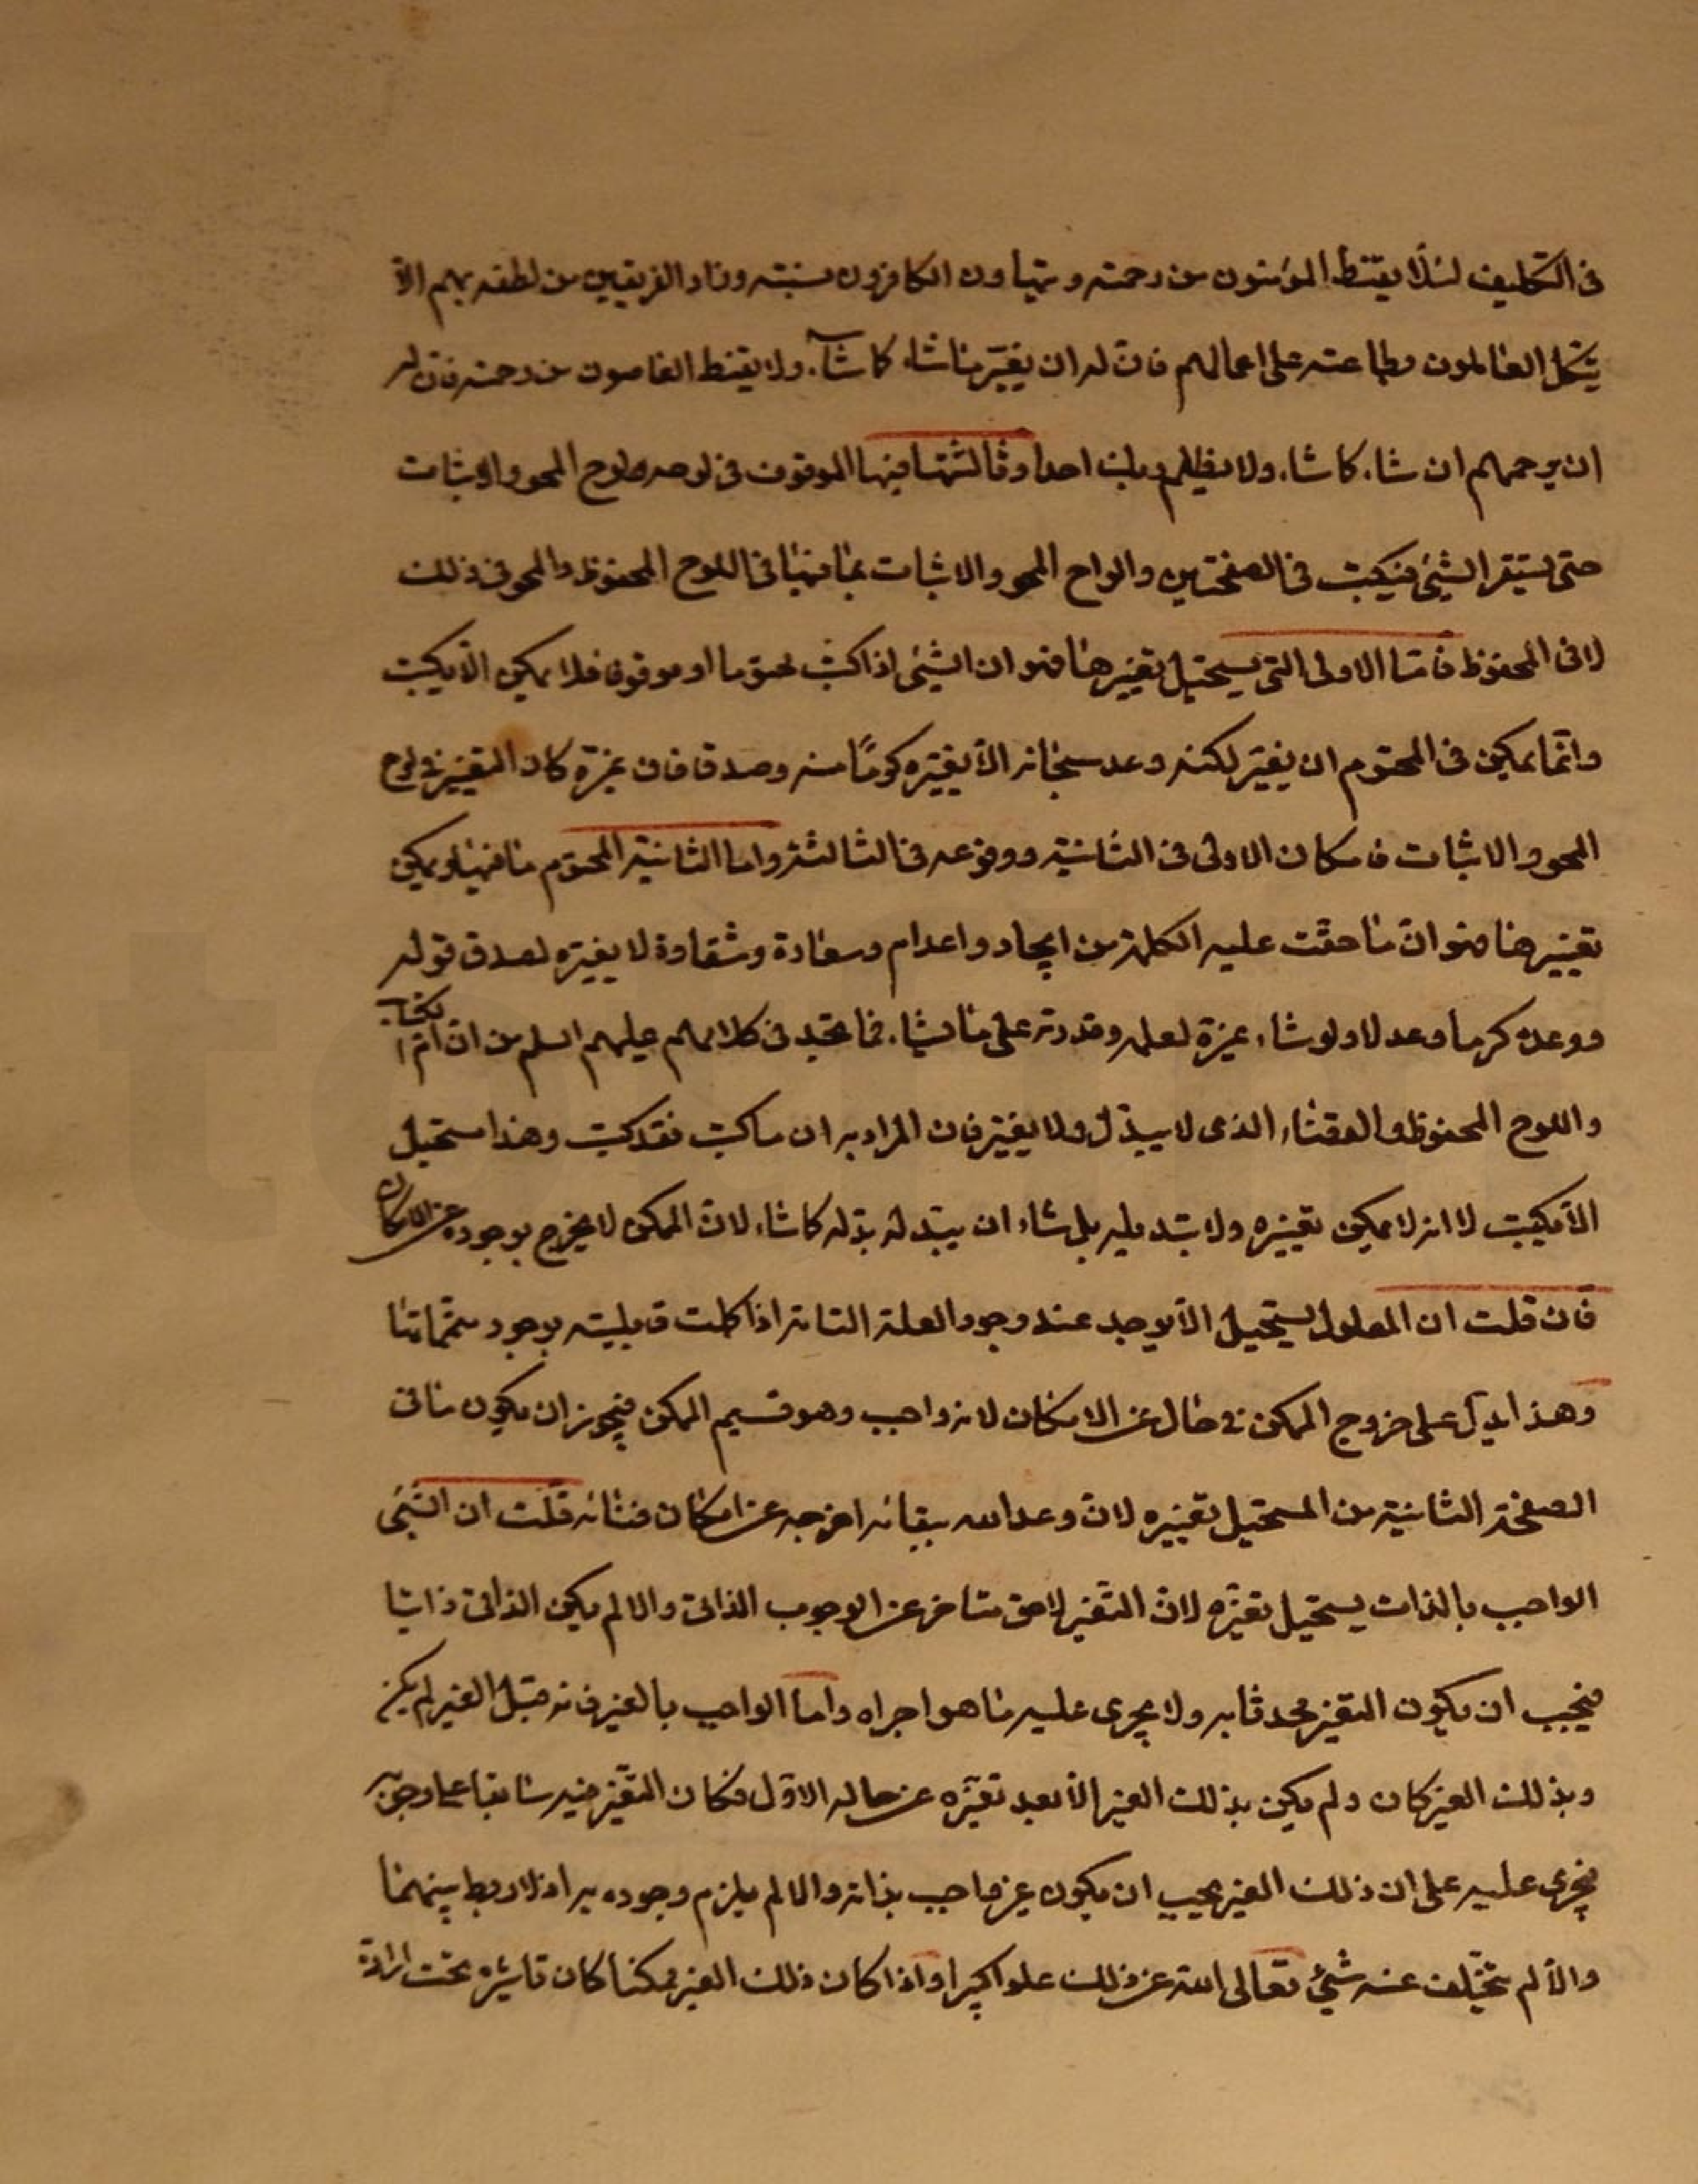 في التكليف لئلّا يقنط المؤمنون من رحمته و يتهاون الكافرون بسنته وزاد الفريقين من لطفه بهم الّا
يتكل العاملون بطاعته على اعمالهم فانّ له ان يغيّر ما شاء كما شآء ولا يقنط العاصون من رحمته فانّ له
ان يرحمهم ان شاء كما شاء ولا يظلم ربك احدا وثالثتها فيها الموقوف في لوحه ولوح المحو والاثبات
حتى يستقر الشيئ فيكتب في الصفحتين والواح المحو والاثبات بما فيها في اللوح المحفوظ والمحو في ذلك
لا في المحفوظ فامّا الاولى التي يستحيل تغييرها فهو ان الشيئ اذا كتب محتوما او موقوفا فلا يمكن الّا يكتب
وانّما يمكن في المحتوم ان يغيّر لكنه وعد سبحانه الّا يغيّره كرمًا منه وصدقا فان غيّره كان التغيير في لوح
المحو والاثبات فامكان الاولى في الثانية ووقوعه في الثالثة واما الثانية المحتوم ما فيها ويمكن
تغييرها فهو انّ ما حقّت عليه الكلمة من ايجاد واعدام وسعادة وشقاوة لا يغيّره لصدق قوله
ووعده كرما وعدلا ولو شاء غيّره لعلمه وقدرته على ما يشاء فما تجد في كلامهم عليهم السلم من ان امّ الكتاب
واللوح المحفوظ والقضاء الذى لا يبدّل ولا يغيّر فان المراد به ان ما كتب فقد كتب وهذا مستحيل
الّا يكتب لا انه لا يمكن تغييره ولا تبديله بل شاء ان يبدله بدّله كما شاء لانّ الممكن لا يخرج بوجوده عن الامكان
فان قلت ان المعلول يستحيل الّا يوجد عند وجود العلة التامة اذا كملت قابليته بوجود متمّماتها
وهذا يدلّ على خروج الممكن في حال عن الامكان لانه واجب وهو قسيم الممكن فيجوز ان يكون ما في
الصفحة الثانية من المستحيل تغييره لانّ وعد الله ببقائه اخرجه عن امكان فنائه قلت ان الشيئ
الواجب بالذات يستحيل تغيّره لانّ التغيّر لاحق متاخر عن الوجوب الذاتى والا لم يكن الذاتى ذاتيا
فيجب ان يكون التغيّر محدثا به ولا يجرى عليه ما هو اجراه واما الواجب بالغير فانه قبل الغير لم يكن
وبذلك الغير كان ولم يكن بذلك الغير الّا بعد تغيّره عن حاله الاوّل فكان التغيّر فيه سابقا على وجوبه
فيجرى عليه على ان ذلك الغير يجب ان يكون غير واجب بذاته والا لم يلزم وجوده به اذ لا ربط بينهما
والّا لم يتخلف عنه شيئ تعالى الله عن ذلك علوا كبيرا واذا كان ذلك الغير ممكنا كان تاثيره تحت ارادة